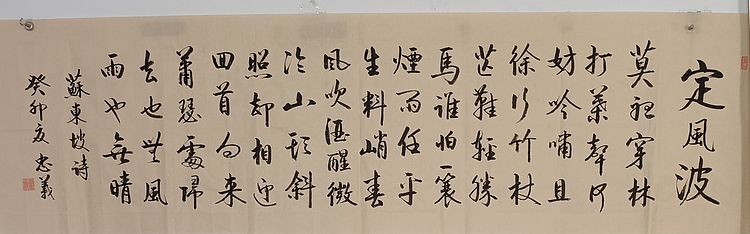 定風波
莫聽穿林
打葉聲何
妨吟嘯且
徐行竹杖
芒鞋輕勝
馬誰怕一蓑
煙雨任平
生料峭春
風吹酒醒微
冷山頭斜
照却相迎
回首向來
蕭瑟處歸
去也無風
雨也無晴
蘇東坡詩
癸卯夏忠義